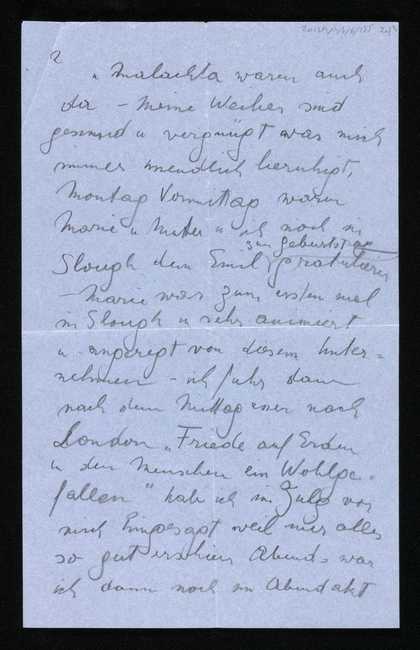 2
u Malachta waren auch
da – Meine Weiber sind
gesund u vergnügt was mich
immer unendlich beruhigt,
Montag Vormittag waren
Marie u Mutter u ich noch in
zum Geburtstag
Slough dem Emil gratulieren
– Marie war zum ersten mal
in Slough u sehr animiert
u. angeregt von diesem Unter=
nehmen – ich fuhr dann
nach dem Mittagessen nach
London „Friede auf Erden
u den Menschen ein Wohlge-
fallen" hab ich im Zuge vor
mich hingesagt weil mir alles
so gut erschien Abends war
ich dann noch im Abendakt